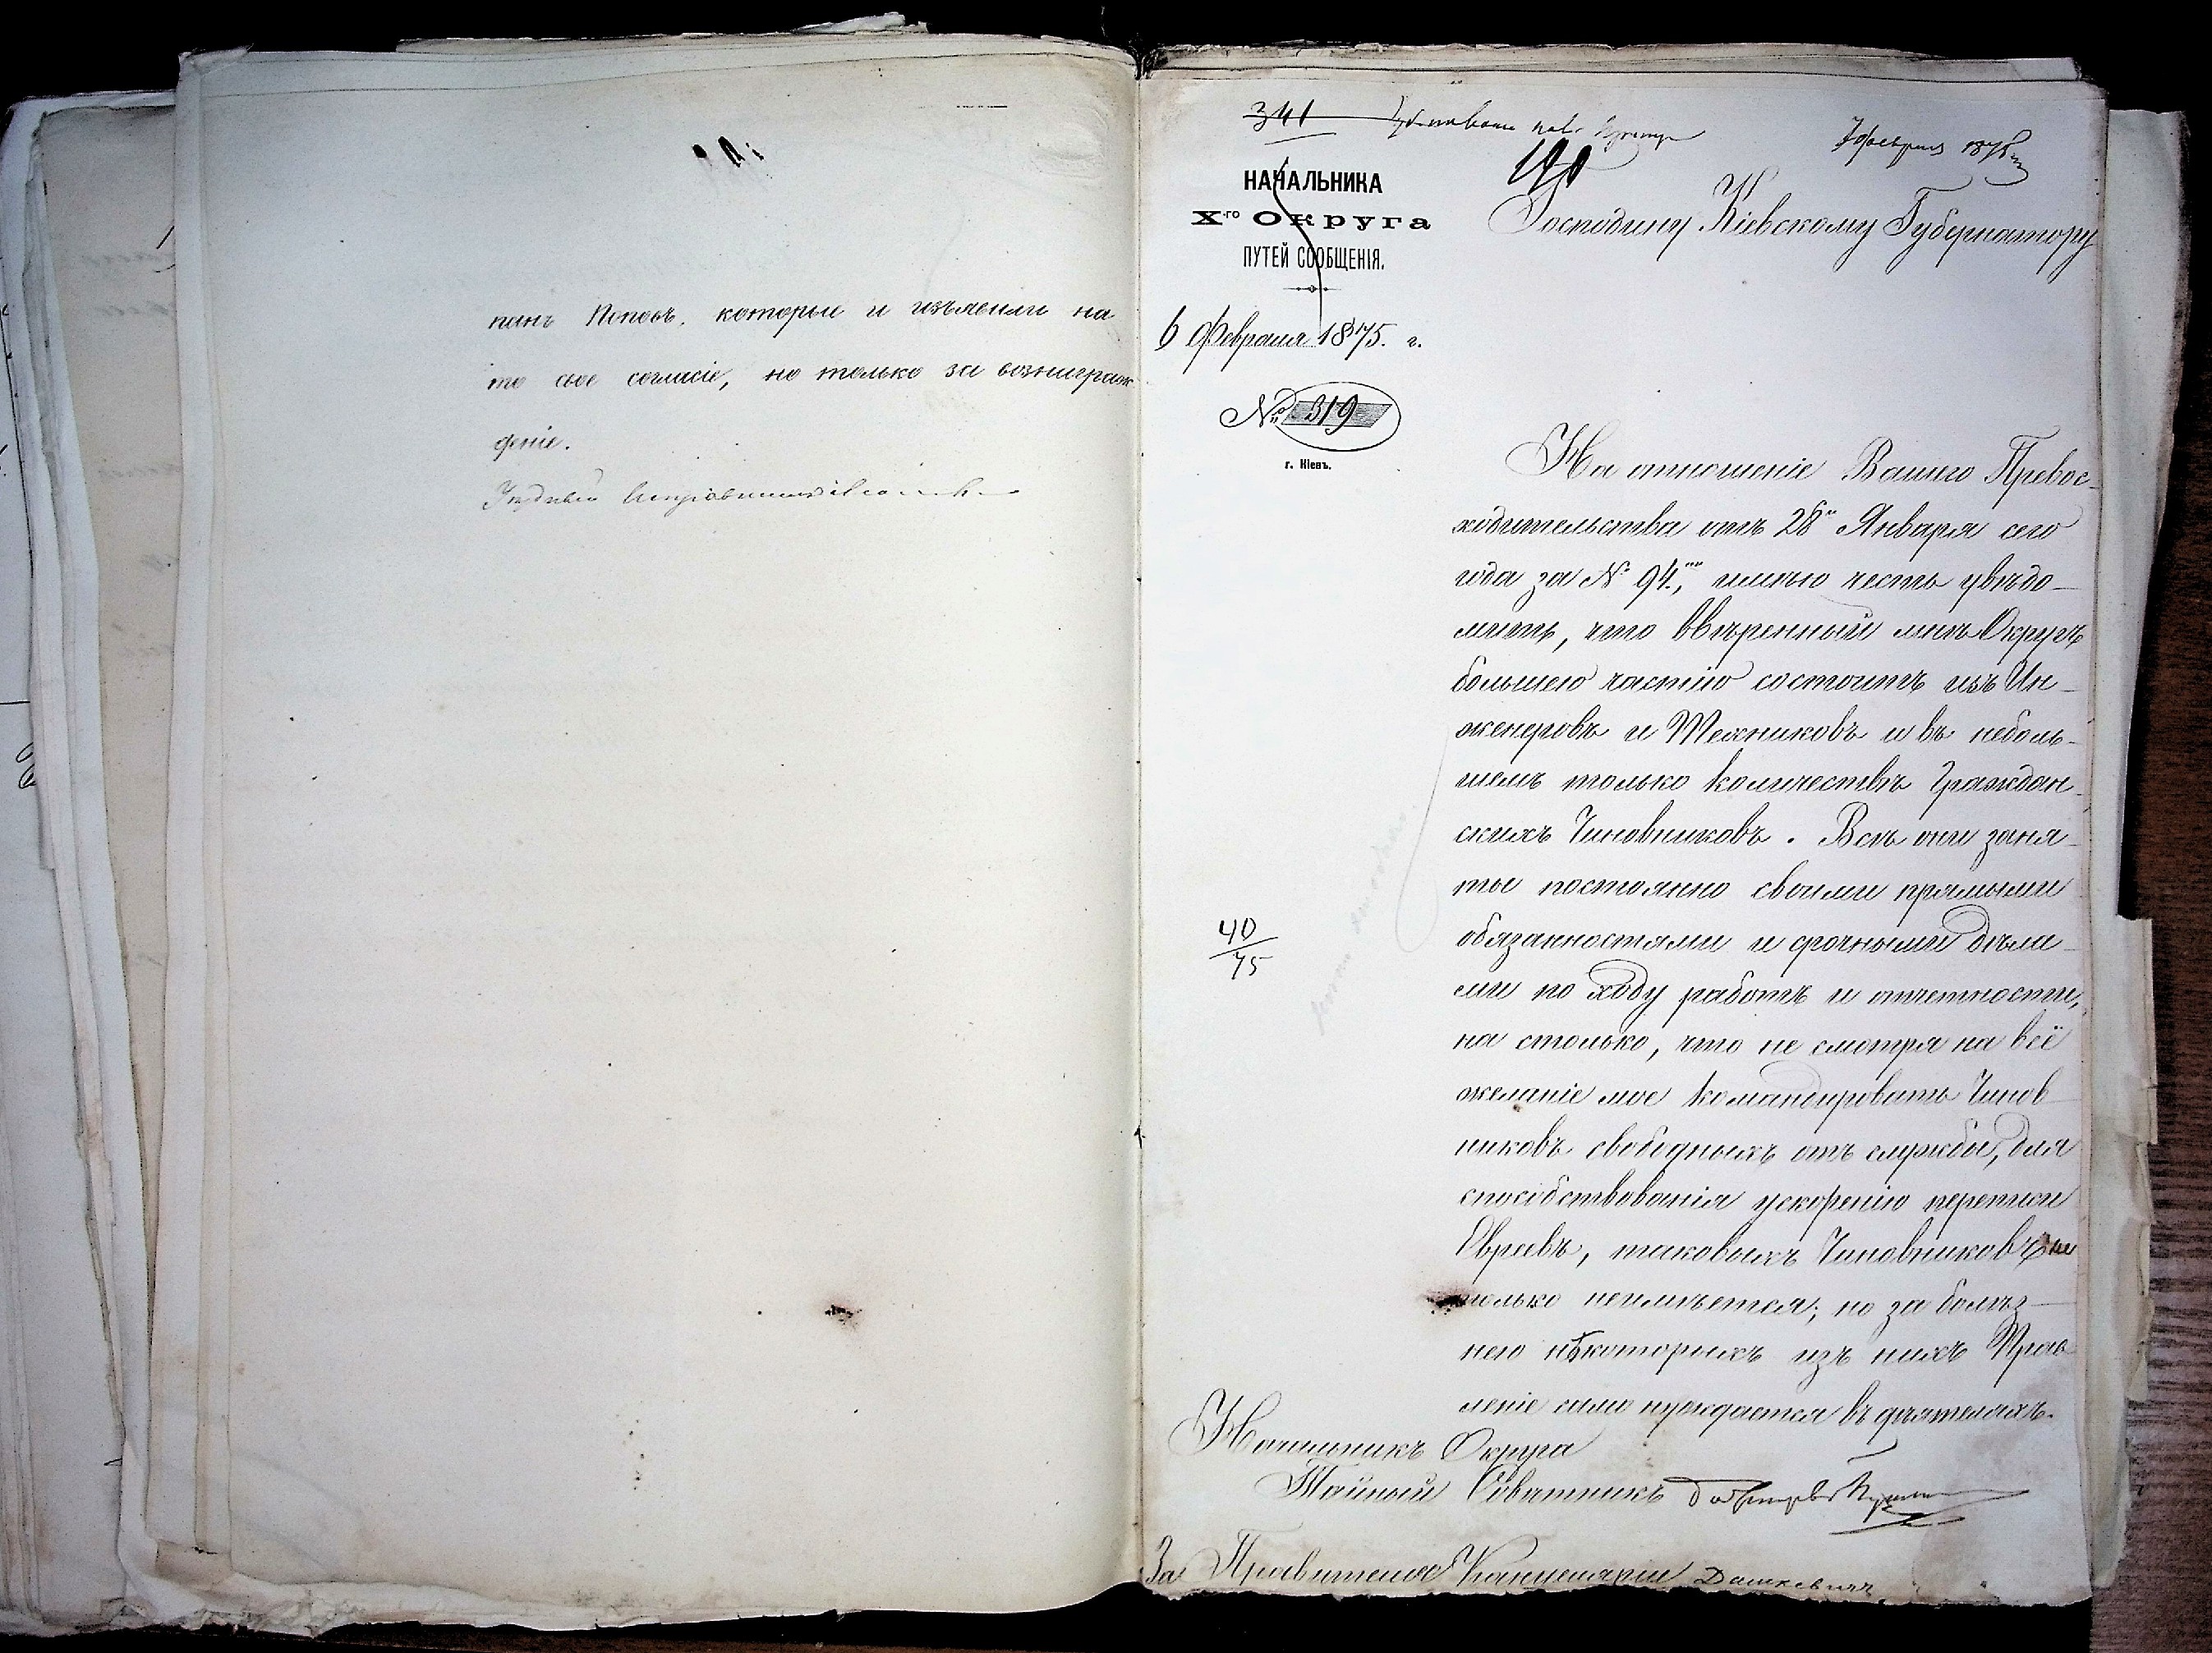 панъ Поповъ, которые и изъявили на
то свое согласіе, но только за вознаграж
деніе.
Уѣздный Исправникъ
341
7 Февраля 1875 г.
190
НАЧАЛЬНИКА
X-го ОКРУГА
ПУТЕЙ СООБЩЕНІЯ.
6 Февраля 1875. г.
№ 319
г. Кіевъ.
Господину Кіевскому Губернатору
На отношеніе Вашего Превос-
ходительства отъ 28го Января сего
года за № 94, имѣю честь увѣдо-
мить, что ввѣренный мнѣ Округъ
большею частію состоитъ изъ Ин-
женеровъ и Техниковъ и въ неболь-
шемъ только количествѣ Граждан-
скихъ Чиновниковъ. Всѣ они заня-
ты постоянно своими прямыми
обязанностями и срочными дѣла-
ми по ходу работъ и отчетности,
на столько, что не смотря на всё
желаніе мое командировать Чинов
никовъ свободныхъ отъ службы, для
способствованія ускоренію переписи
Евреевъ, таковыхъ Чиновниковъ не
только неимѣется; но за болѣз-
нею нѣкоторыхъ изъ нихъ Прав
леніе само нуждается въ дѣятеляхъ.
40/75
Начальникъ Округа
Тайный Совѣтникъ
За Правителя Канцеляріи Дашкевичъ